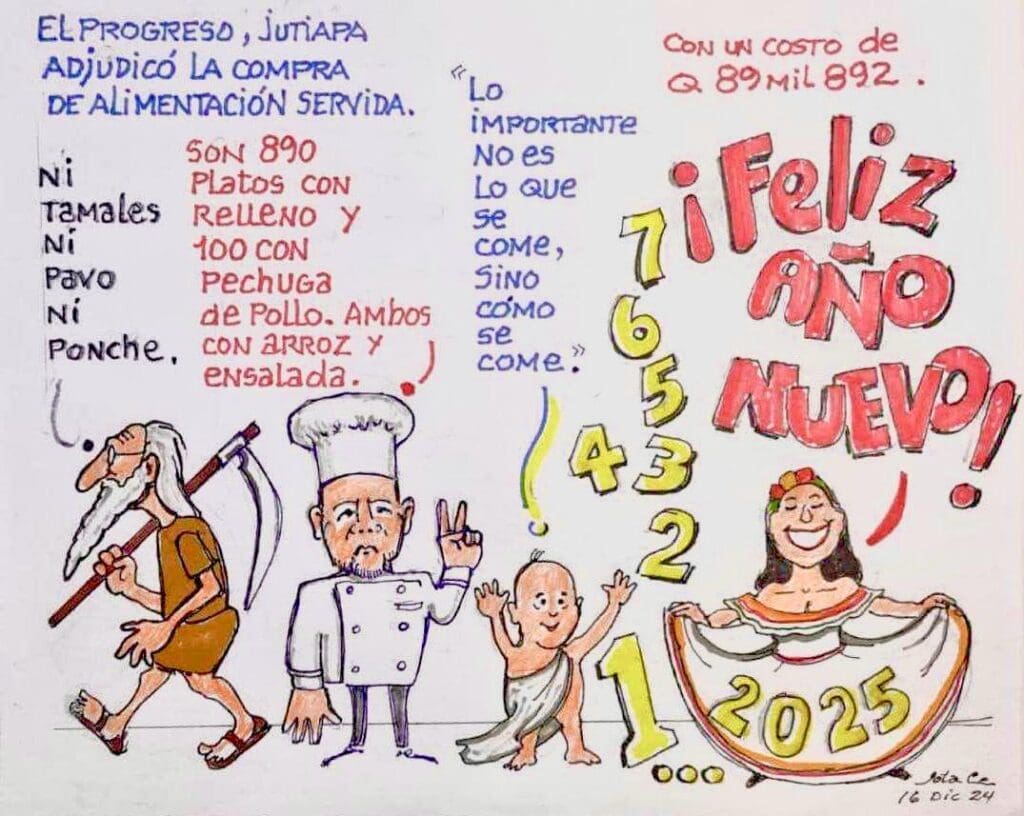 EL PROGRESO, JUTIAPA
ADJUDICÓ LA COMPRA
DE ALIMENTACIÓN SERVIDA.
Ni
TAMALES
Ni
PAVO
Ni
PONCHE.
SON 890
PLATOS CON
RELLENO Y
100 CON
PECHUGA
de POLLO. AMBOS
CON ARROZ Y
ENSALADA.
"Lo
IMPORTANTE
NO ES
LO QUE
SE
COME,
SINO
CÓMO
SE
COME."
CON UN COSTO de
Q 89 MIL 892.
¡FELIZ
AÑO
NUEVO!
7
6
5
4 3
2
1...
2025
Jota Ce
16 Dic 24